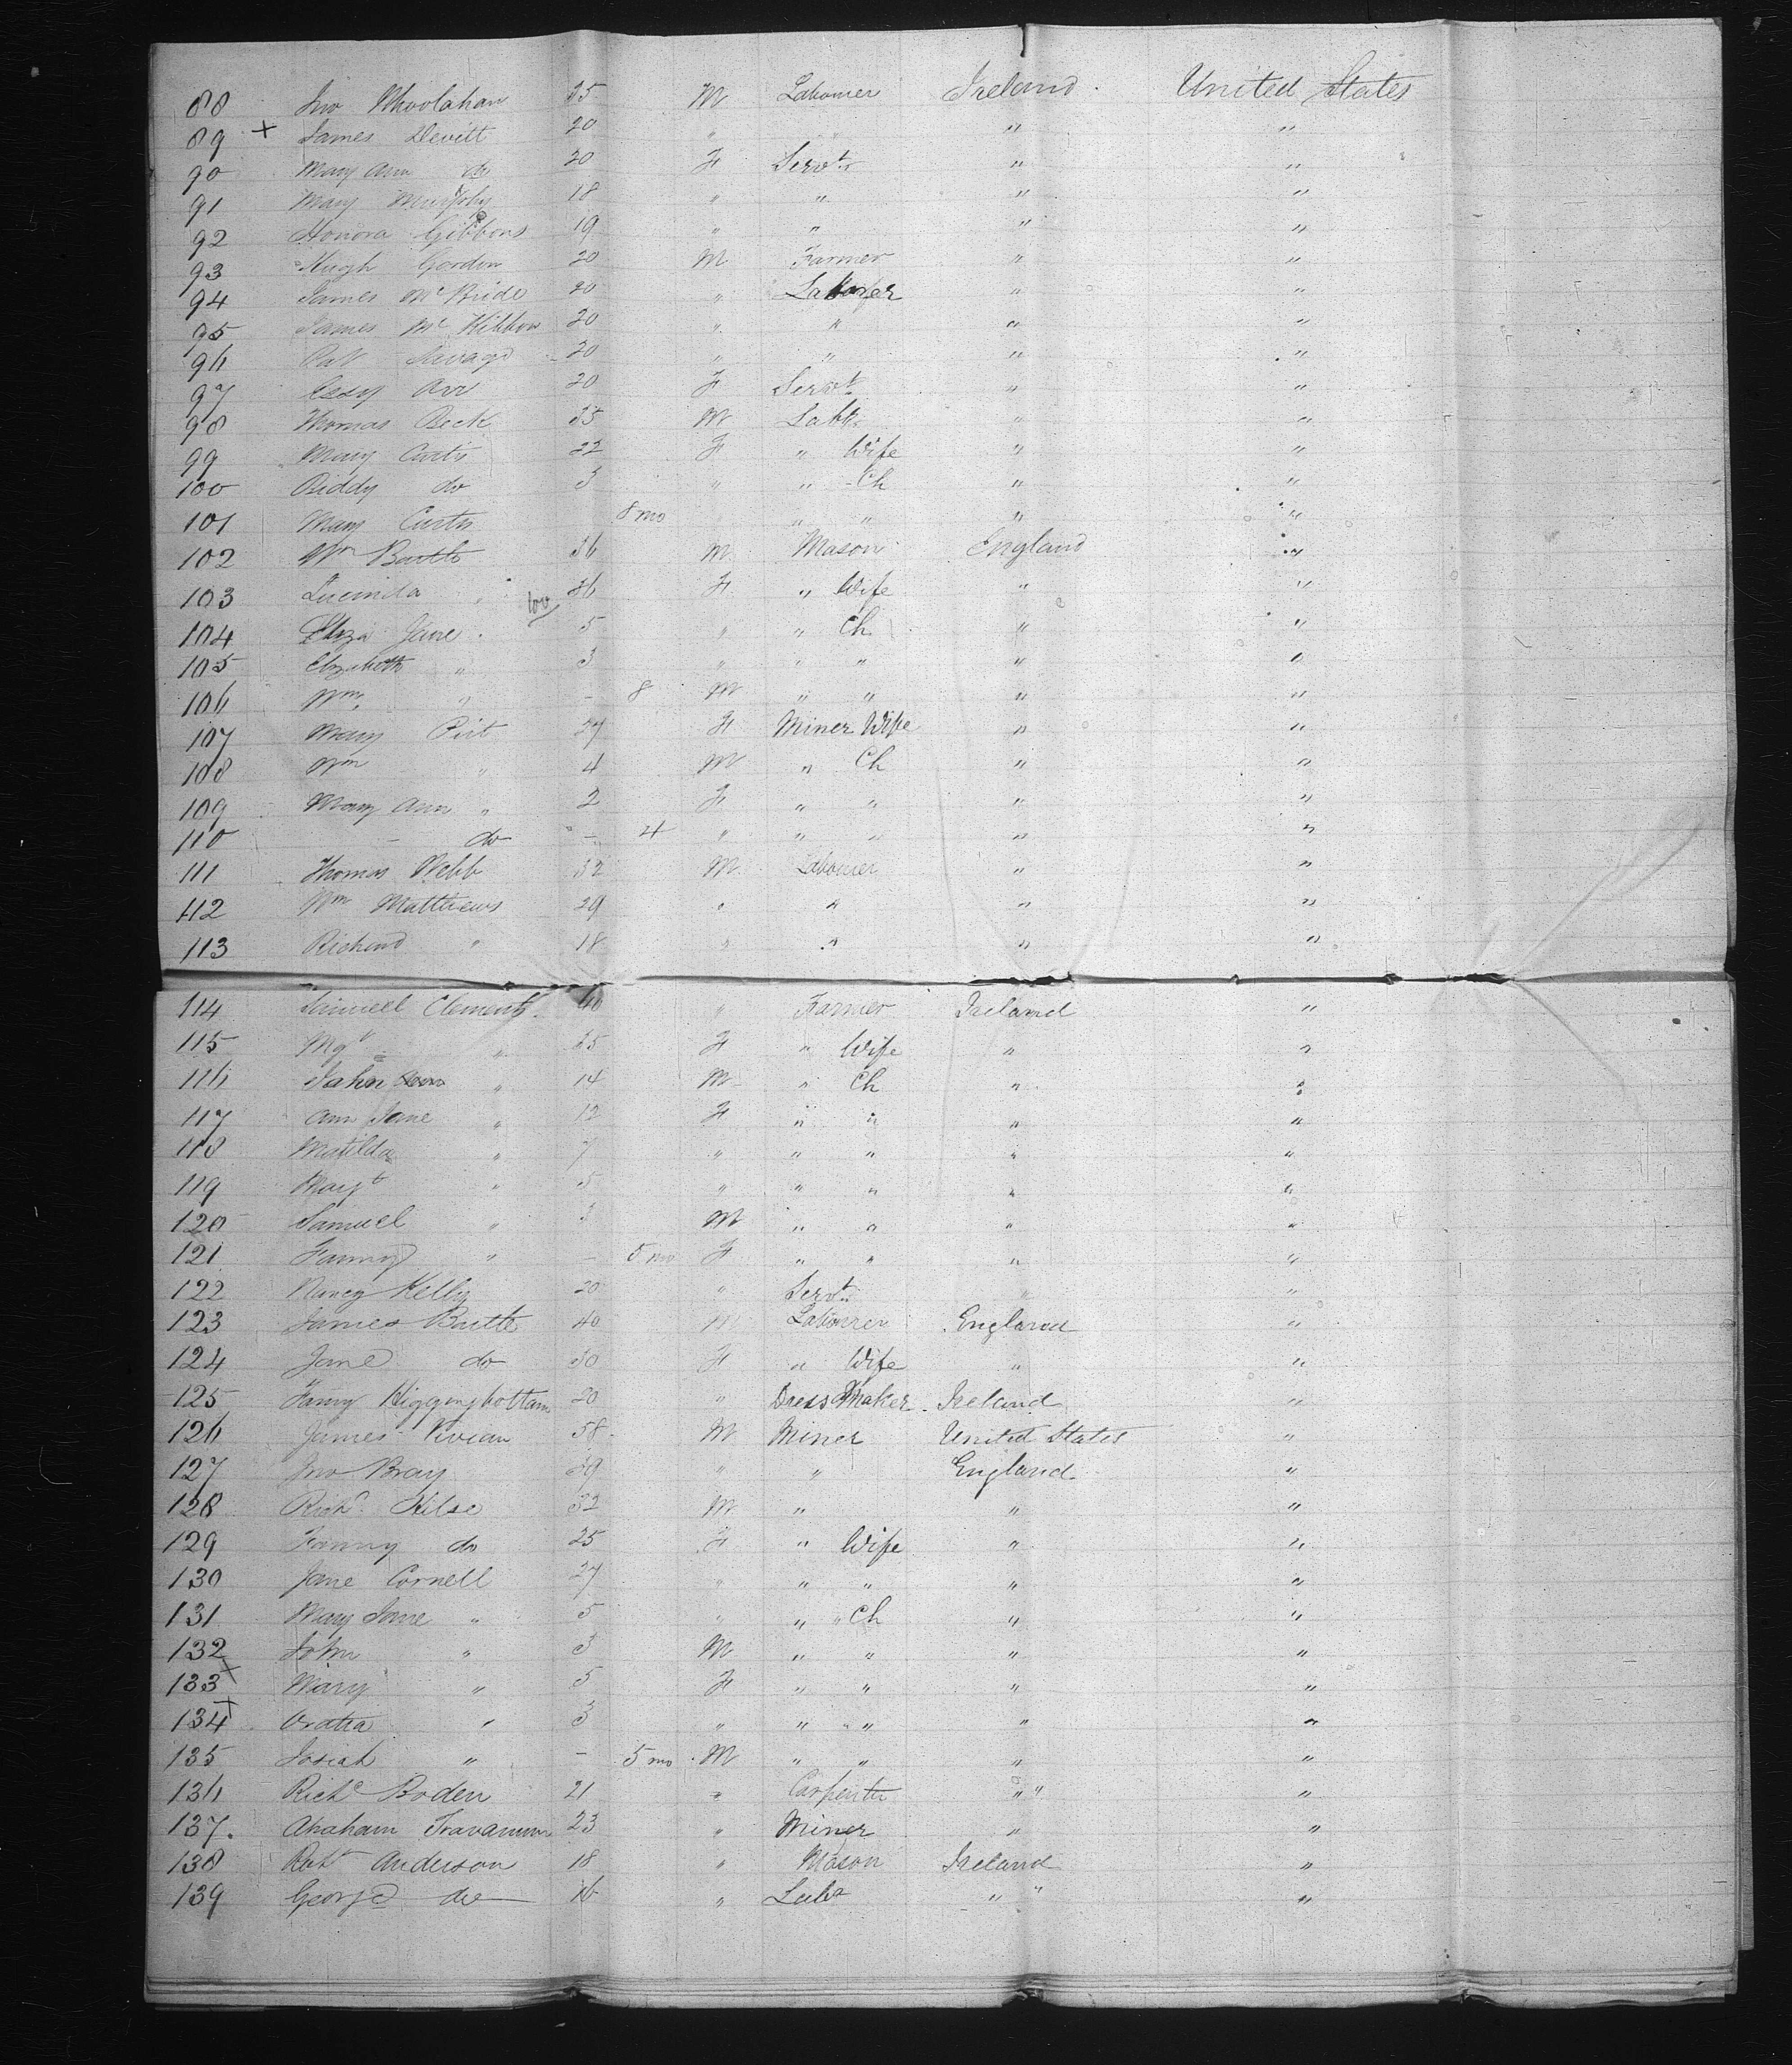 88 Jno Whoolahan 35 M Labourer Ireland United States
89 + James Devitt 20 " " " "
90 Mary Ann do 20 F Servt " "
91 Mary Murphy 18 " " " "
92 Honora Gibbons 19 " " " "
93 Hugh Gordon 20 M Farmer " "
94 James McBride 20 " " "
95 James McKibbon 20 " " " "
96 Pat Savage 20 " " " "
97 Orr 20 F Servt " "
98 Thomas Beck 35 M Labr " "
99 Mary Curtis 22 F " Wife " "
100 Biddy do 3 " " Ch " "
101 Mary Curtis 8 mo " " " "
102 Wm 36 M Mason England "
103 Lucinda " 36 F " Wife " "
104 Eliza Jane 5 " " Ch " "
105 Elizabeth " 3 " " " " "
106 Wm " - 8 M " " " "
107 Mary 27 F Miner Wife " "
108 Wm " 4 M " Ch " "
109 Mary Ann " 2 F " " " "
110 - do - 4 " " " " "
111 Thomas Webb 32 M Labourer " "
112 Wm Matthews 29 " " " "
113 Richard " 18 " " " "
114 Samuel Clements 40 " Farmer Ireland "
115 Mgt " 35 F " Wife " "
116 John " 14 M " Ch " "
117 Ann Jane " 12 F " " " "
118 Matilda " 7 " " " " "
119 Margt " 5 " " " " "
120 Samuel " 3 M " " " "
121 Fanny " - 5 mo F " " " "
122 Nancy Kelly 20 " Servt " "
123 James 40 M Labourer England "
124 Jane do 30 F " Wife " "
125 Fanny Higginbottam 20 " Dress Maker Ireland "
126 James Vivian 58 M Miner United States "
127 Jno Bray 39 " " England "
128 Richd 32 M " " "
129 Fanny do 25 F " Wife " "
130 Jane Cornell 27 " " " " "
131 Mary Jane " 5 " " " Ch " "
132 John " 3 M " " " "
133 + Mary " 5 F " " " "
134 + " 3 " " " " "
135 Josiah " - 5 mo M " " " "
136 Richd Boden 21 " Carpenter " " "
137 Abraham 23 " Miner " "
138 Robt Anderson 18 " Mason Ireland "
139 George do 16 " Labr " " "